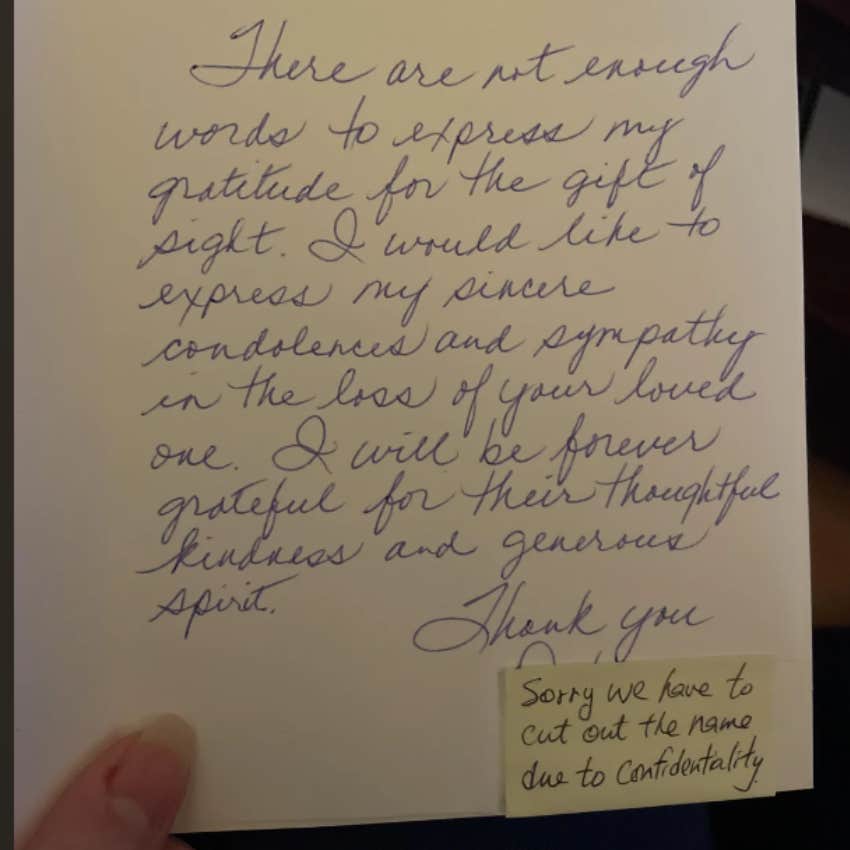 There are not enough
words to express my
gratitude for the gift of
sight. I would like to
express my sincere
condolences and sympathy
in the loss of your loved
one. I will be forever
grateful for their thoughtful
kindness and generous
spirit.
Thank you
Sorry we have to
cut out the name
due to Confidentality